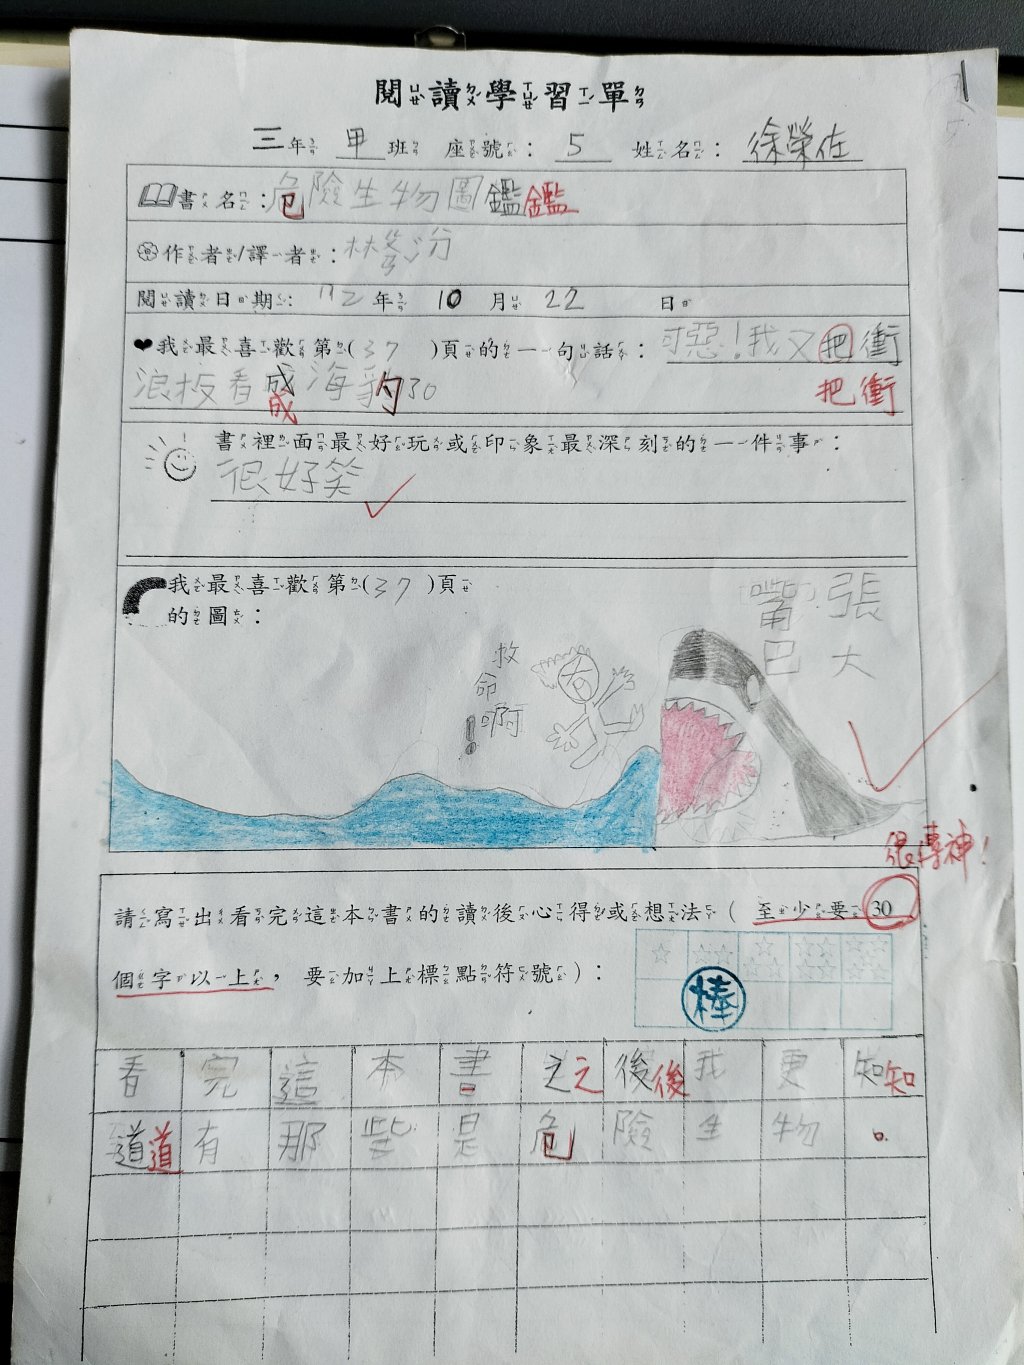 閱讀學習單
三年甲班 座號：5 姓名：徐榮佐
書名：危險生物圖鑑鑑
作者/譯者：林 汾
閱讀日期： 年 10 月 22 日
我最喜歡第(37)頁的一句話：可惡！我又把衝
浪板看成海豹30 把衝
成
書裡面最好玩或印象最深刻的一件事：
很好笑
我最喜歡第(37)頁
的圖：
張大
嘴巴
救命啊！
很傳神！
請寫出看完這本書的讀後心得或想法（至少要30
個字以上，要加上標點符號）：
棒
看完這本書之之後後我更知知
道道有那些是危險生物。